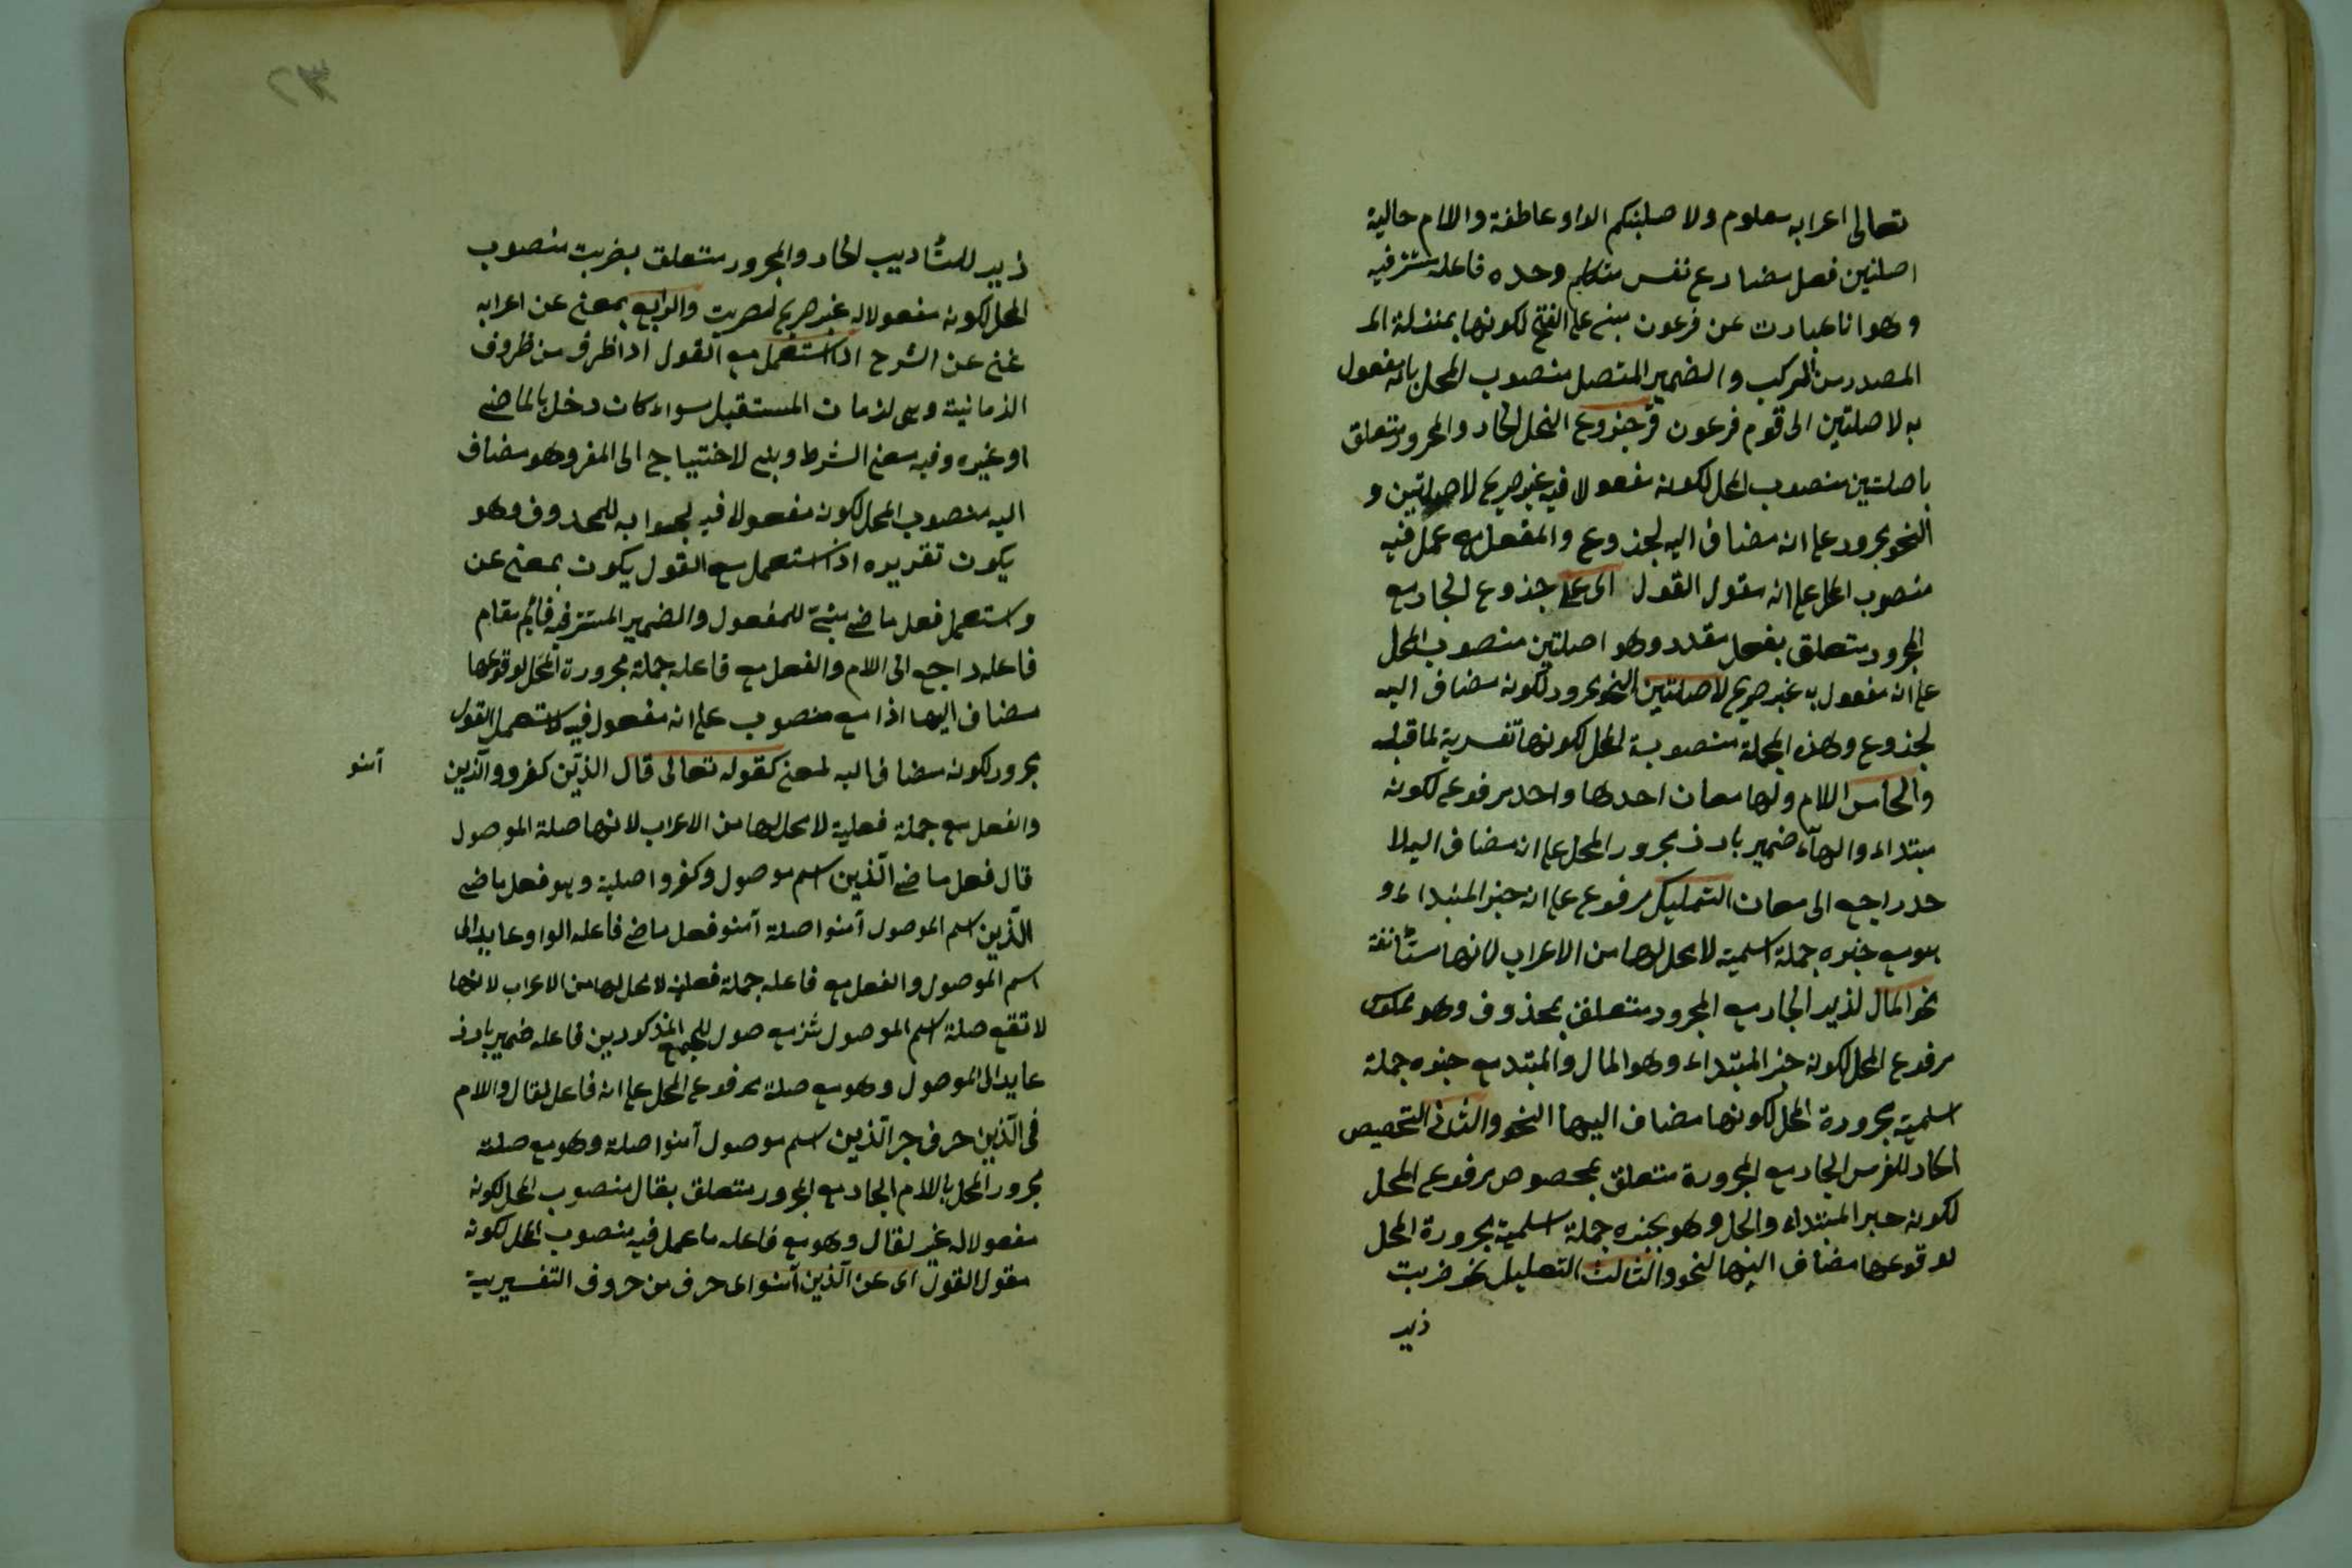 تعالى اعرابه معلوم ولا صلبنكم الواو عاطفة واللام حالية
اصلتين فعل مضارع نفس متكلم وحده فاعله مستتر فيه
وهو انا عبارت عن فرعون مبنى على الفتح لكونها بمنزلة الـ
المصدر من المركب والضمير المتصل منصوب المحل بانه مفعول
به لاصلتين الى قوم فرعون فى جذوع النخل الجار والمجرور متعلق
باصلتين منصوب المحل لكونه مفعولا فيه غير صريح لاصلتين و
النحو مجرور على انه مضاف اليه لجذوع والمفعل مع عمل فيه
منصوب المحل على انه مقول القول اى على جذوع الجار مع
المجرور متعلق بفعل مقدر وهو اصلتين منصوب المحل
على انه مفعول به غير صريح لاصلتين النحو مجرور لكونه مضاف اليه
لجذوع وهذه الجملة منصوبة المحل لكونها تفسرية لما قبله
والخامس اللام ولها معان احدها واحد مرفوع لكونه
مبتداء والهاء ضمير بارز مجرور المحل على انه مضاف اليه لا
حد راجع الى معان التمليك مرفوع على انه خبر المبتداء و
هو مع خبره جملة اسمية لا محل لها من الاعراب لانها مستأنفة
نحو المال لزيد الجار مع المجرور متعلق بمحذوف وهو مملوك
مرفوع المحل لكونه خبر المبتداء وهو المال والمبتدء مع خبره جملة
اسمية مجرورة المحل لكونها مضاف اليها النحو والثانى التخصيص
الحار للفرس الجار مع المجرورة متعلق بمخصوص مرفوع المحل
لكونه خبر المبتداء والحل وهو بخبره جملة اسمية مجرورة المحل
لوقوعها مضاف اليها النحو والثالث التعليل نحو ضربت
زيد
زيد للتأديب الجار والمجرور متعلق بضربت منصوب
المحل لكونه مفعولا له غير صريح لضربت والرابع بمعنى عن اعرابه
غنى عن الشرح اذا استعمل مع القول اذا ظرف من ظروف
الزمانية وهى لزمان المستقبل سواء كان دخل بالماضى
او غيره وفيه معنى الشرط وبنى لاحتياج الى المفر وهو مضاف
اليه منصوب المحل لكونه مفعولا فيه لجوابه للمحذوف وهو
يكون تقريره اذا استعمل مع القول يكون بمعنى عن
واستعمل فعل ماضى مبنى للمفعول والضمير المستتر فيه قائم مقام
فاعله راجع الى اللام والفعل مع فاعله جملة مجرورة المحل لوقوعها
مضاف اليها اذا مع منصوب على انه مفعول فيه لاستعمل القول
مجرور لكونه مضاف اليه لمعنى كقوله تعالى قال الذين كفروا والذين
آمنو
والفعل مع جملة فعلية لا محل لها من الاعراب لانها صلة الموصول
قال فعل ماضى الذين اسم موصول وكفروا صلية وهو فعل ماضى
الذين اسم الموصول آمنوا صلة آمنو فعل ماضى فاعله الواو عايد الى
اسم الموصول والفعل مع فاعله جملة فعلية لا محل لها من الاعراب لانها
لا تقع صلة اسم الموصول مع صول للجمع المذكورين فاعله ضمير بارز
عايد الى الموصول وهو مع صلة مرفوع المحل على انه فاعل لقال واللام
فى الذين حرف جر الذين اسم موصول آمنوا صلة وهو مع صلته
مجرور المحل باللام الجار مع المجرور متعلق بقال منصوب المحل لكونه
مفعولا له غير لقال وهو مع فاعله ما عمل فيه منصوب المحل لكونه
مقول القول اى عن الذين آمنوا اى حرف من حروف التفسيرية